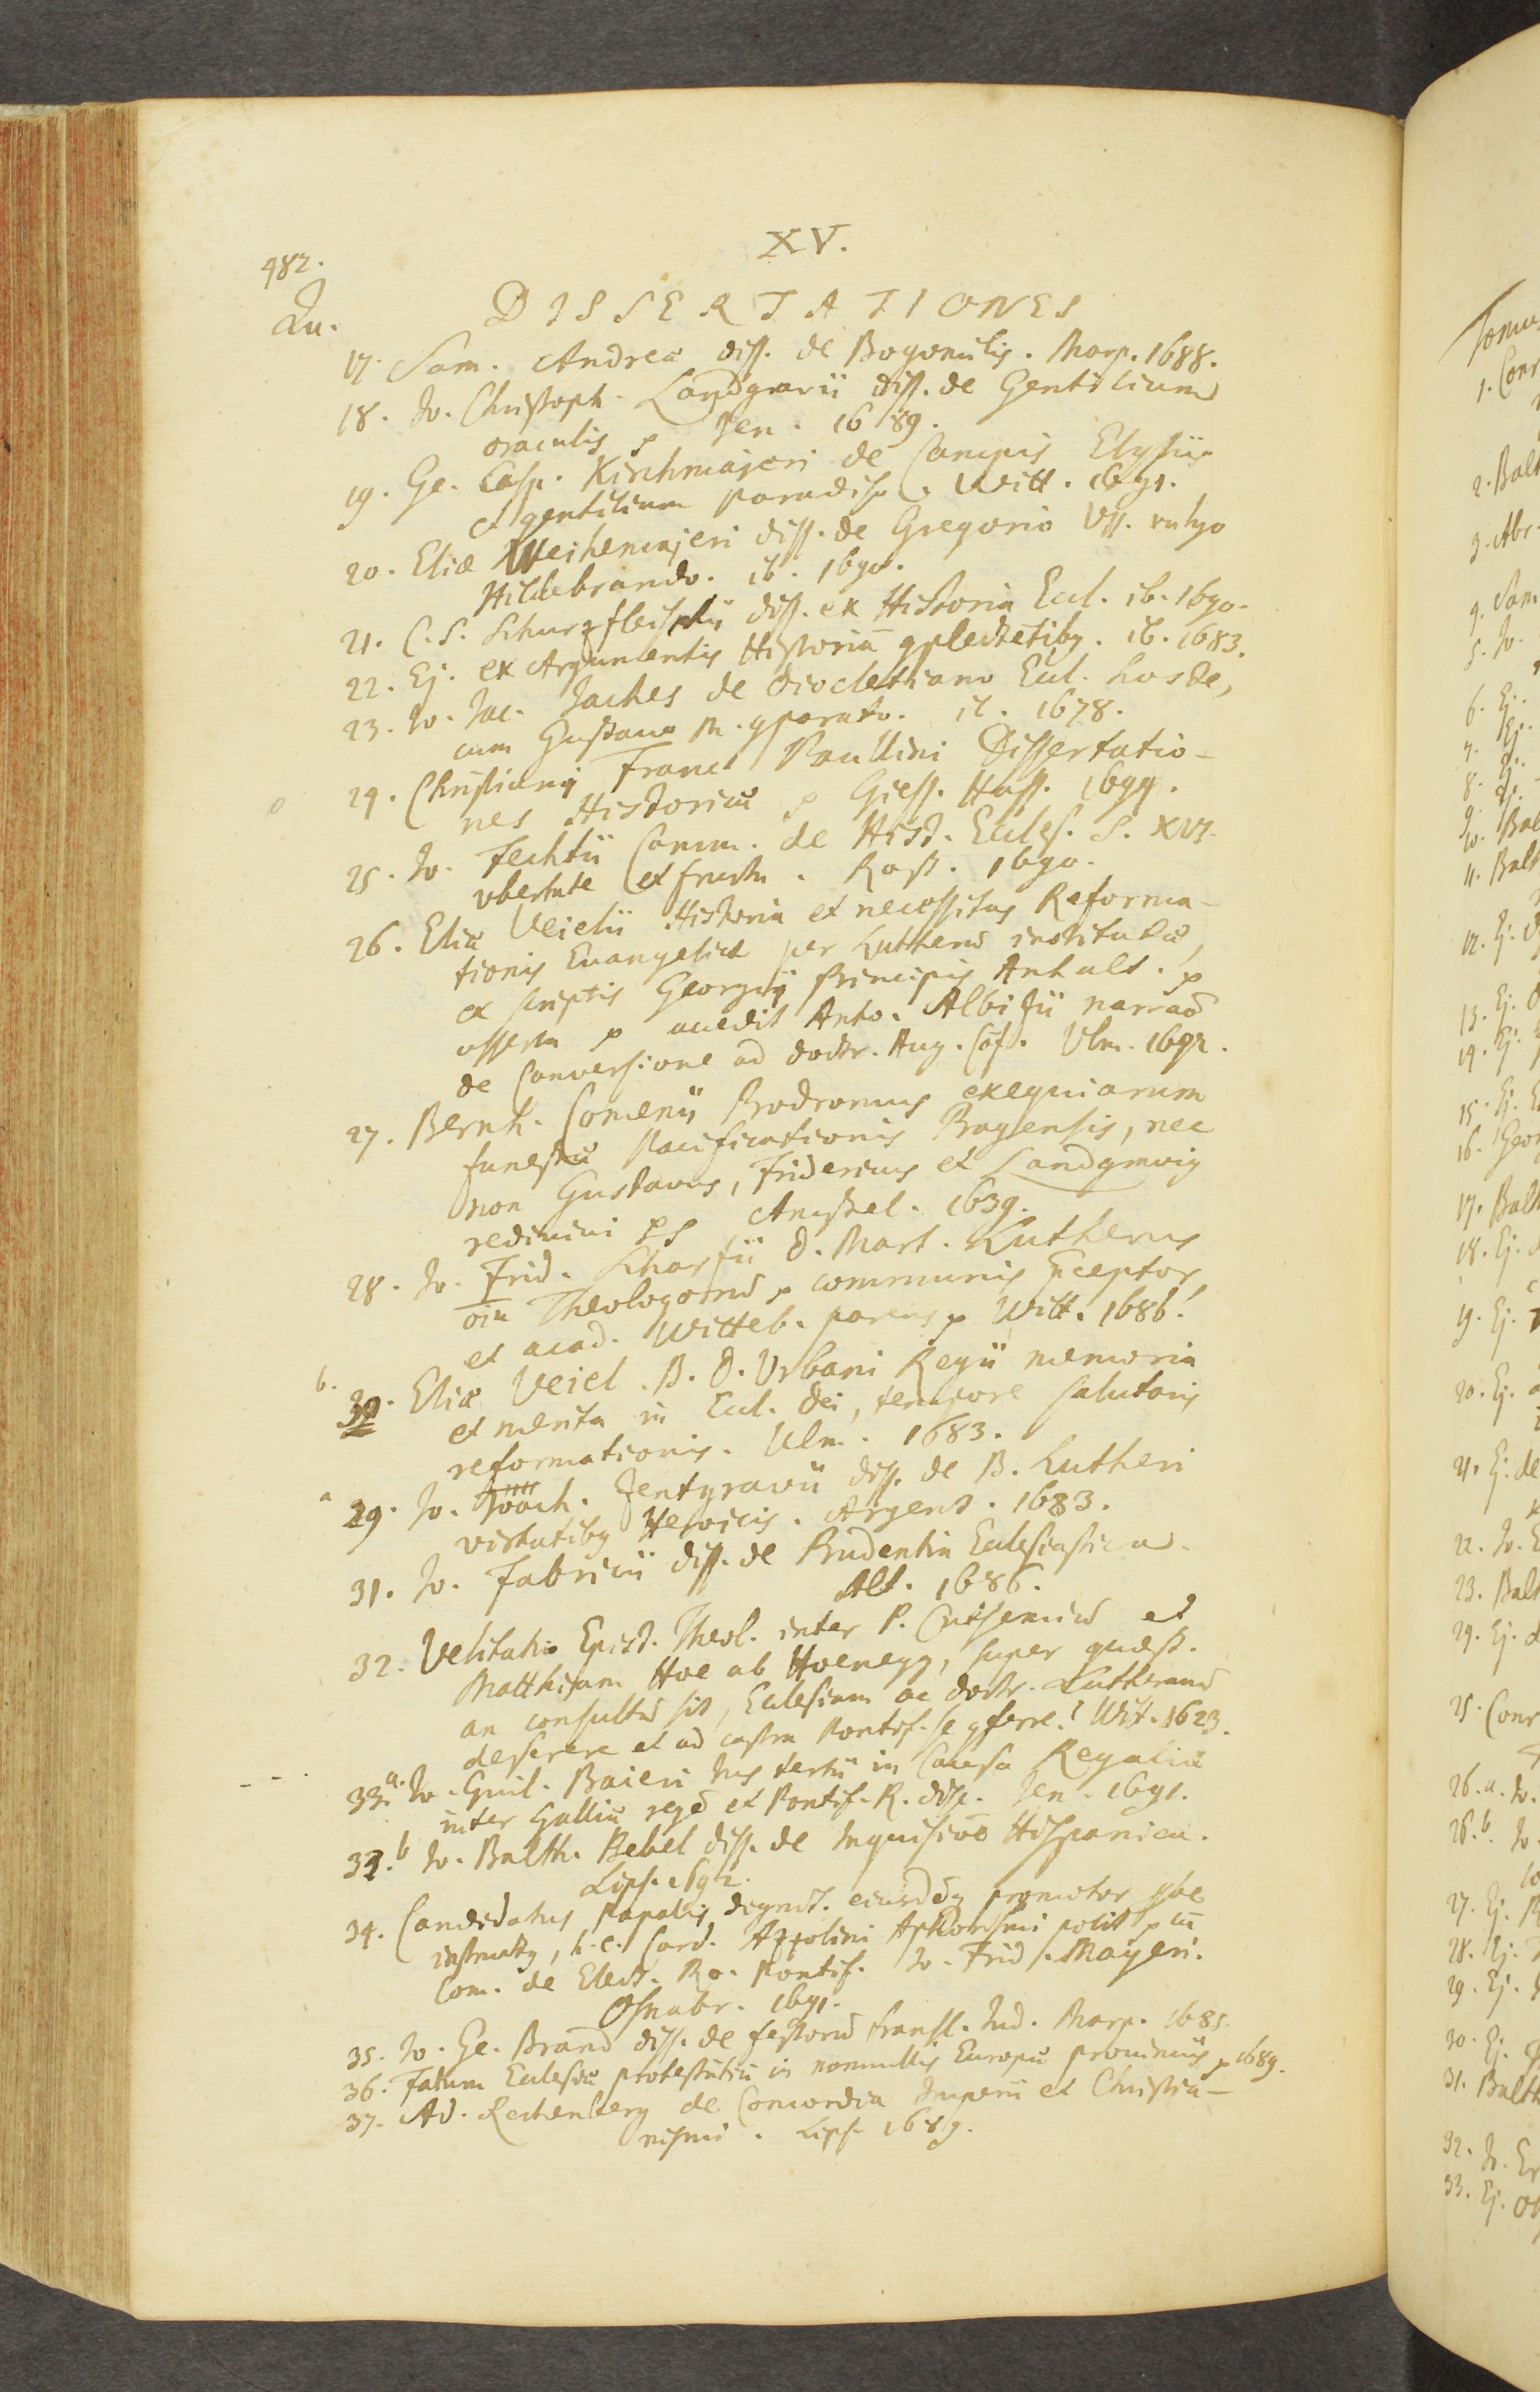 XV.
482.
Qu.
DISSERTATIONES
17. Sam. Andreæ diss. de Bogomilis. Marp. 1688.
18. Jo. Christoph. Landgravii diss. de Gentilium
oraculis p Jen. 1689.
19. Ge. Casp. Kirchmajeri de Campis Elysiis
et gentilium paradiso. Witt. 1691.
20. Eliæ Weihenmajeri diss. de Gregorio VII. vulgo
Hildebrando. ib. 1690.
21. C. S. Schurzfleischii diss. ex Historia Eccl. ib. 1690.
22. Ej. ex Argumentis Historiã 9plectẽtiby. ib. 1683.
23. Jo. Jac. Jaches de Diocletiano Eccl. hoste,
cum Gustavo M. 9parato. it. 1678.
24. Christiani Franc Paullini Dissertatio-
nes Historicæ p Giess. Hass. 1694.
25. Jo. Fechtii Comm. de Hist. Eccles. S. XVI.
vbertate et fructu. Rost. 1690.
26. Eliæ Veielii Historia et necessitas Reforma-
tionis Evangelicæ per Lutherũ institutæ,
ex scriptis Georgij Principis Anhalt. p
asserta p accedit Anto. Albizii narraõ
de Conversione ad doctr. Aug. Cõf. Ulm. 1692.
27. Bernh. Comenij Prodromus exequiarum
funestæ Pacificationis Pragensis, nec
non Gustavus, Fridericus et Landgravig
redivivi pp Amstel. 1639.
28. Jo. Frid. Scharfii D. Mart. Lutherus
oĩu Theologorũ p communis p̃ceptor,
et acad. Witteb. parens p Witt. 1686.
b.
30. Eliæ Veiel. B. D. Urbani Regii memoria
et merita in Eccl. Dei, tempore salutaris
reformationis. Ulm. 1683.
a
29. Jo. Joach. Zentgravii diss. de B. Lutheri
virtutiby Heroicis. Argent. 1683.
31. Jo. Fabricii diss. de Prudentia Ecclesiastica.
Alt. 1686.
32. Velitatio Epist. Theol. inter P. Cuthenium et
Matthiam Hoe ab Hoenegg, super quæst.
an consultũ sit, Ecclesiam ac doctr. Lutheranã
deserere et ad castra Pontif. se 9ferre? Wit. 1623.
- - -
33.a. Jo. Guil. Baieri Jus tertii in Causa Regaliæ
inter Galliæ regẽ et Pontif. R. disp. Jen. 1691.
33.b Jo. Balth. Bebel diss. de Inquisiõe Hispanica.
Lips. 1692.
34. Candidatus Papalis dignit. eiusdẽg promotor pbe
instructg, h.e. Card. Azzolini Aphorismi polit p cũ
Com. de Elect. Ro. Pontif. Jo. Frid. Mayeri.
Osnabr. 1691.
35. Jo. Ge. Brand diss. de festorũ transl. Jud. Marp. 1685.
36. Fatum Ecclesiæ protestãtiũ in nonnullis Europæ provinciis p 1689.
37. Ad. Rechenberg de Concordia Imperii et Christia-
nismi. Lips. 1689.
Tomu
1. Conr
2. Balt
3. Abr.
4. Sam
5. Jo.
6. Ej.
7. Ej.
8. Ej.
9. Ej.
10. Bal
11. Balt
12. Ej. D
13. Ej.
14. Ej.
15. Ej. E
16. Geor
17. Balt
18. Ej. d
19. Ej.
20. Ej.
21. Ej. de
22. Jo. E
23. Balt
24. Ej. d
25. Conr
26.a. Jo.
26.b. Jo
27. Ej. R
28. Ej.
29. Ej.
30. Ej.
31. Balth
32. Jo. Er
33. Ej. Ob